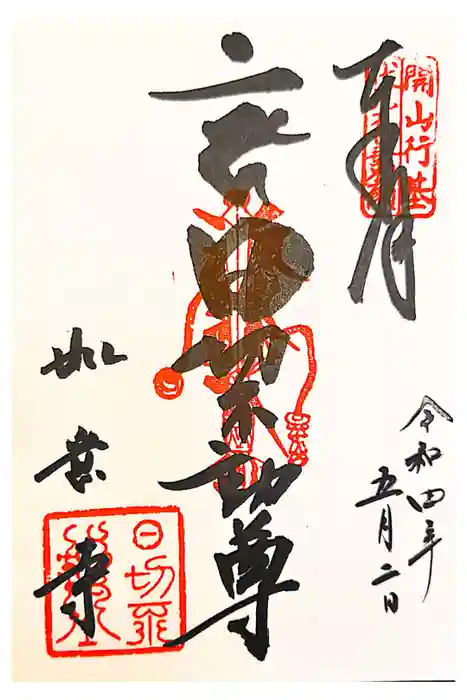 奉拝
開山行基
日切不動尊
令和四年
五月二日
如意寺
日切不